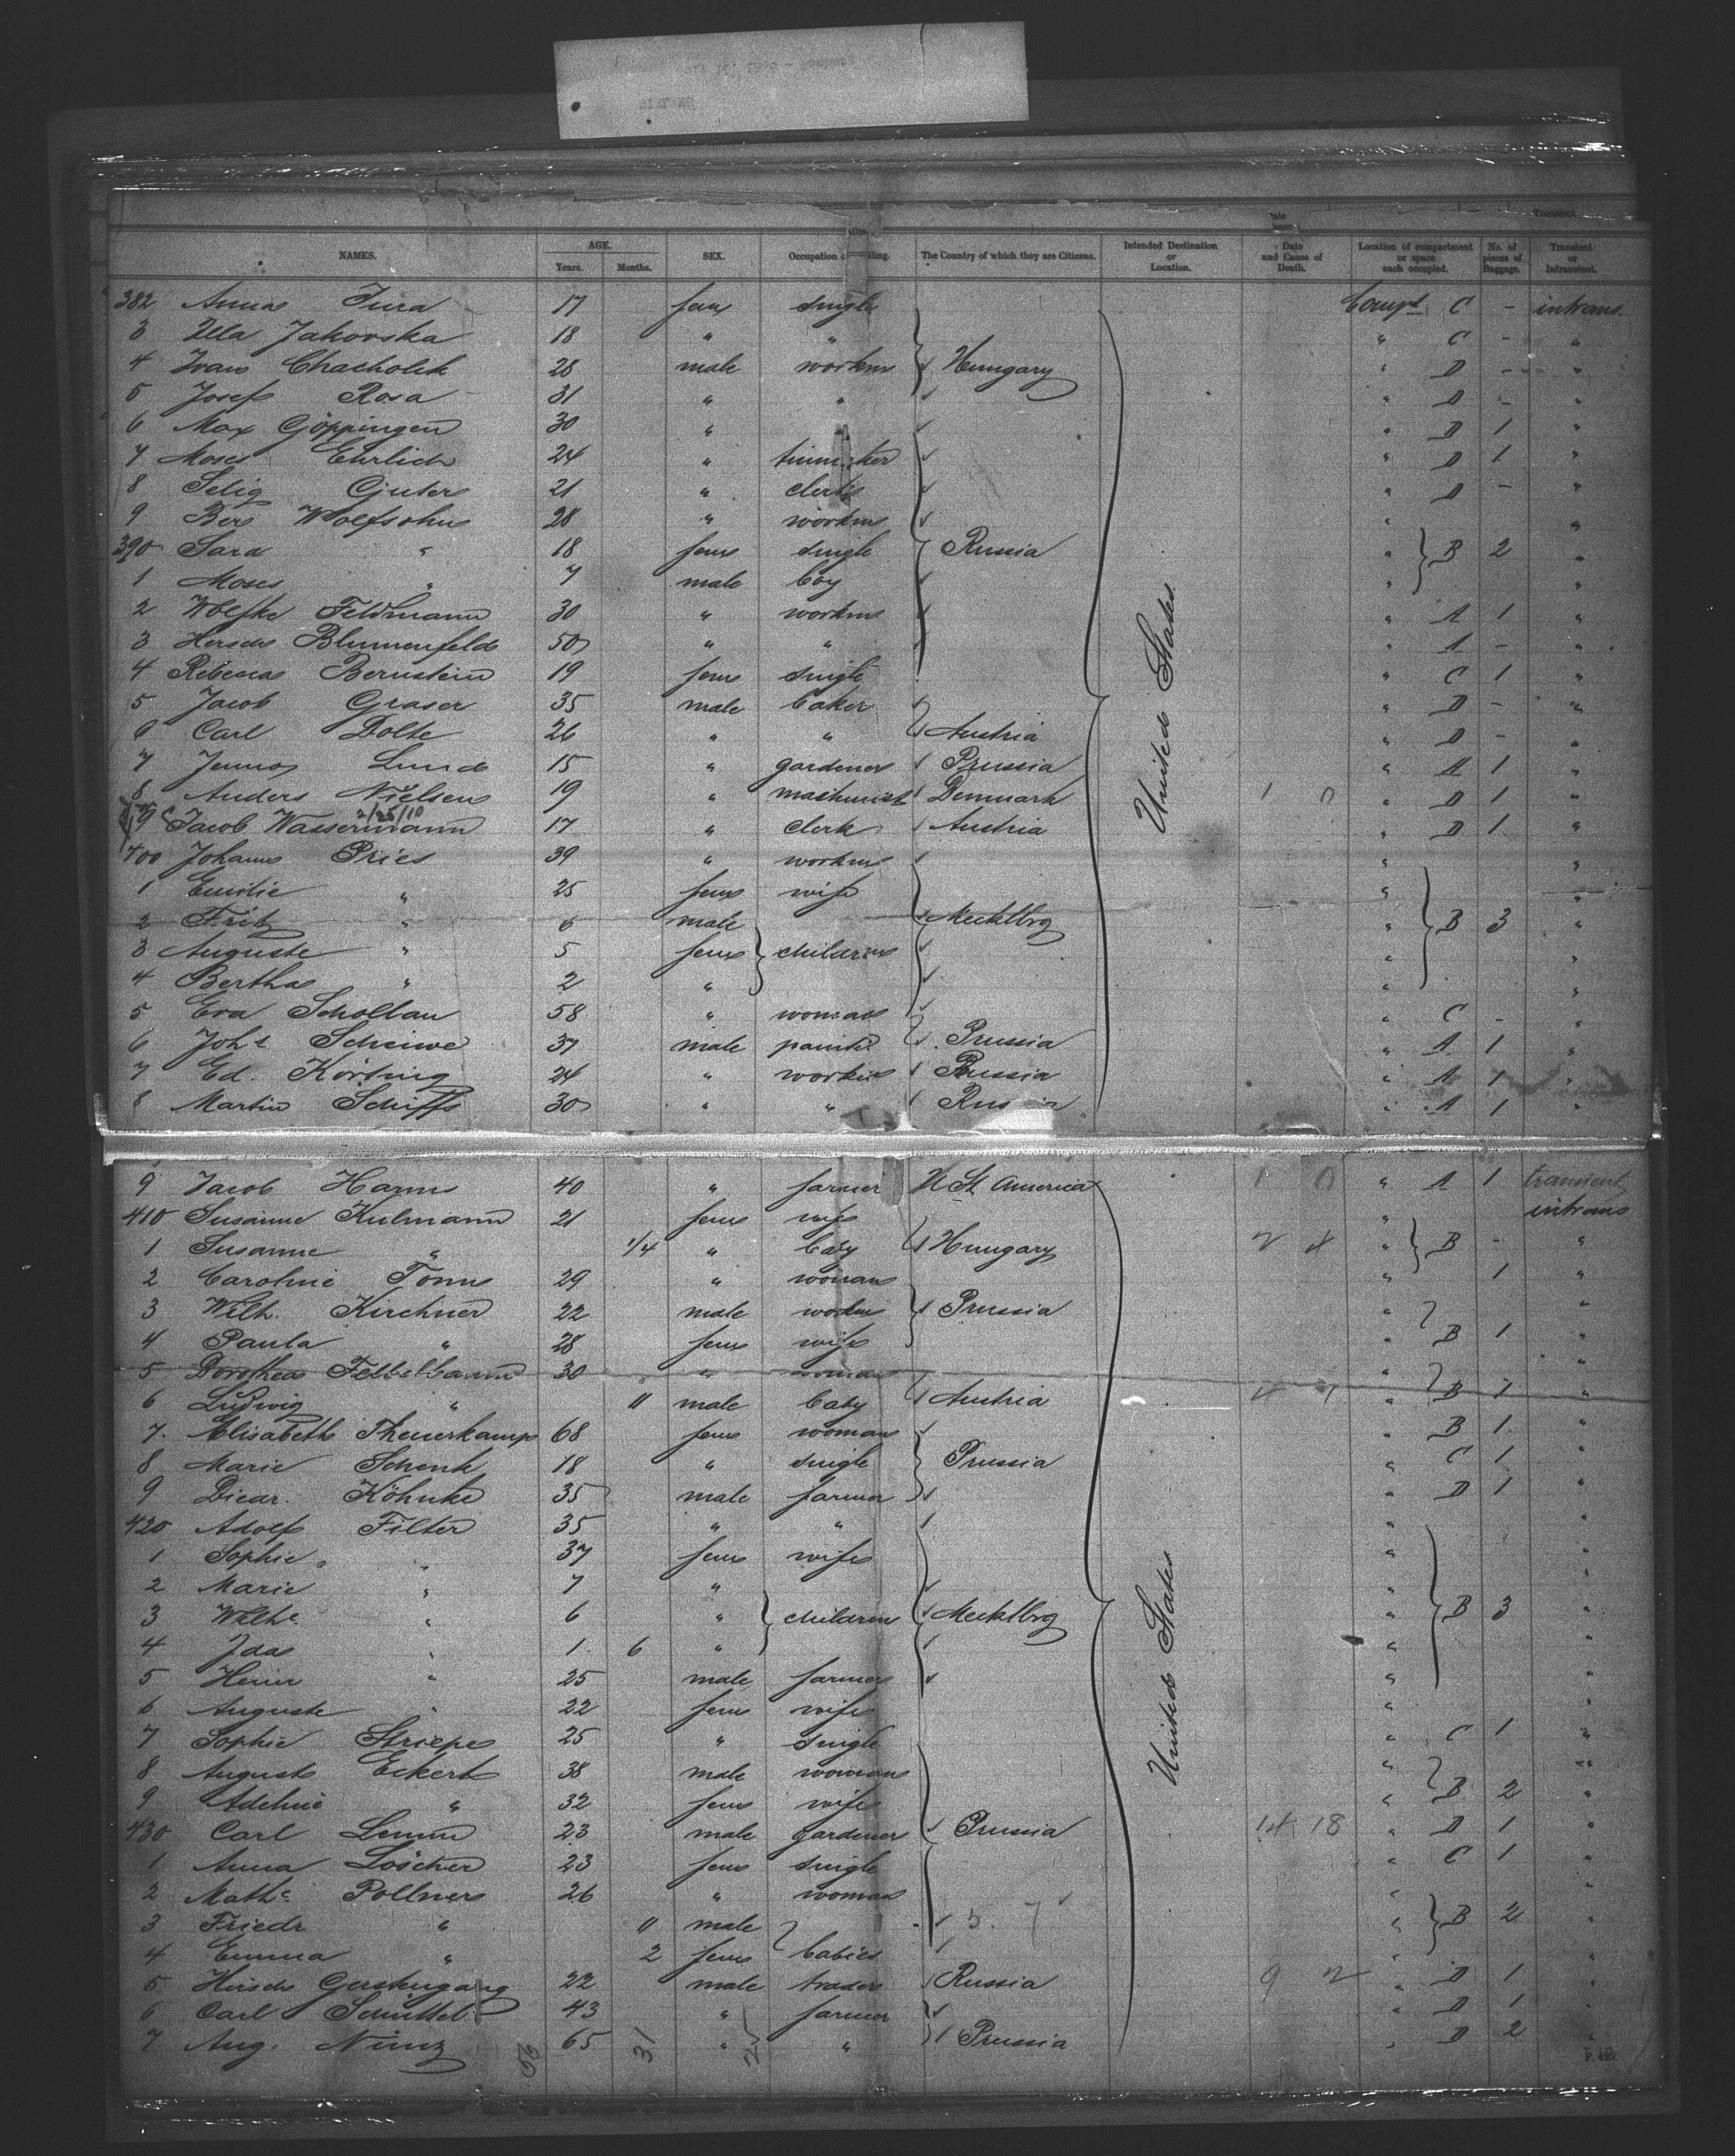 NAMES. AGE. Years. Months. SEX. Occupation or Calling. The Country of which they are Citizens. Intended Destination or Location. Date and Cause of Death. Location of compartment or space each occupied. No. of pieces of Baggage. Transient or Intransient.
382 Anna 17 fem single Compt C - intrans.
3 Jakovska 18 " " " C - "
4 Ivan Chacholik 28 male workm Hungary " D - "
5 Josef Rosa 31 " " " D - "
6 Max Göppingen 30 " " D 1 "
7 Moses Ehrlich 24 " " D 1 "
8 Selig 21 " clerk " D - "
9 Ber Wolfsohn 28 " workm " "
390 Sara " 18 fem single Russia " B 2 "
1 Moses " 7 male boy " "
2 Wolfke Feldmann 30 " workm " A 1 "
3 Hersch Blumenfeld 50 " " " A - "
4 Rebecca Bernstein 19 fem single " C 1 "
5 Jacob Graser 35 male baker " D - "
6 Carl Bolte 26 " " Austria " D - "
7 Lund 15 " gardener Prussia " A 1 "
8 Anders Nielsen 19 " machinist Denmark 1 0 " D 1 "
2/25/10
9 Jacob Wassermann 17 " clerk Austria " D 1 "
400 Johann Pries 39 " workm " "
1 Emilie " 25 fem wife " "
2 Fritz " 6 male Mecklbrg " B 3 "
3 Auguste " 5 fem children " "
4 Bertha " 2 " " "
5 Eva Schollau 58 " woman " C - "
6 Johs Scheiwe 37 male painter Prussia " A 1 "
7 Ed. Körting 24 " workm Prussia " A 1 "
8 Martin Schiff 30 " " Russia " A 1 "
United States
9 Jacob Harms 40 " farmer U St. America 1 0 " A 1 transient
410 Susanne Kulmann 21 fem wife " intrans
1 Susanne " 1/4 " baby Hungary 2 4 " B - "
2 Caroline Tonn 29 " woman " 1 "
3 Wilh. Kirchner 22 male workm Prussia " "
4 Paula " 28 fem wife " B 1 "
5 Dorothea 30 " woman " "
6 Ludwig " 11 male baby Austria " B 1 "
7 Elisabeth Theuerkamp 68 fem woman " B 1 "
8 Marie Schenk 18 " single Prussia " C 1 "
9 Diedr. Köhnke 35 male farmer " D 1 "
420 Adolf Filter 35 " " " "
1 Sophie " 37 fem wife " "
2 Marie " 7 " " "
3 Wilhe " 6 " children Mecklbrg " B 3 "
4 Ida " 1 6 " " "
5 Heinr " 25 male farmer " "
6 Auguste " 22 fem wife " "
7 Sophie Striepe 25 " single " C 1 "
8 August Eckert 38 male woman " "
9 Adeline " 32 fem wife " B 2 "
430 Carl Lemm 23 male gardener Prussia 14 18 " D 1 "
1 Anna Löscher 23 fem single " C 1 "
2 Mathe Pollner 26 " woman " "
3 Friedr " 11 male 5. 7 " B 2 "
4 Emma " 2 fem babies " "
5 Hirsch Gerstengang 22 male trader Russia 9 2 " D 1 "
6 Carl Schüttel 43 " farmer " D 1 "
7 Aug. Nimz 65 " " Prussia " D 2 "
United States
56 31 25